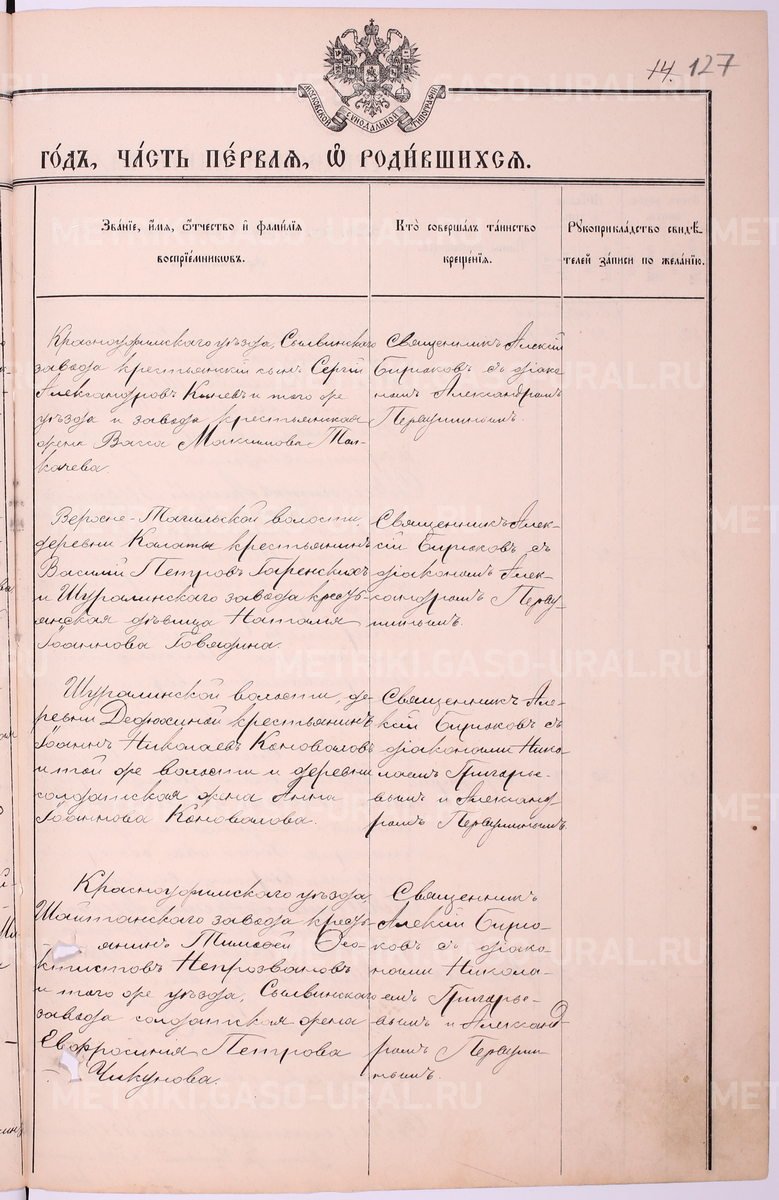 14. 127
МОСКОВСКОЙ СѴНОДАЛЬНОЙ ТИПОГРАФІИ
ГОДЪ, ЧАСТЬ ПЕРВАЯ, Ѡ РОДИВШИХСЯ.
Званіе, имя, ѿчество и фамилія
воспріемникѡвъ.
Кто совершалъ таинство
крещенія.
Рукоприкладство свидѣ-
телей записи по желанію.
Красноуфимскаго уѣзда, Сылвинскаго
завода крестьянскій сынъ Сергій
Александровъ и того же
уѣзда и завода крестьянская
жена Васса Максимова Тол-
качева.
Священникъ Алексій
Бирюковъ съ діако-
номъ Александромъ
Первушинымъ.
Верхне-Тагильской волости,
деревни Калаты крестьянинъ
Василій Петровъ Гаренскихъ
и Шуралинскаго завода кресть-
янская дѣвица Наталія
Іоаннова Говядина.
Священникъ Алек-
сій Бирюковъ съ
діакономъ Алек-
сандромъ Перву-
шинымъ.
Шуралинской волости, де-
ревни Федюсиной крестьянинъ
Іоаннъ Николаевъ Коноваловъ
и той же волости и деревни
солдатская жена Анна
Іоаннова Коновалова.
Священникъ Але-
ксій Бирюковъ съ
діаконами Нико-
лаемъ Григорье-
вымъ и Александ-
ромъ Первушинымъ.
Красноуфимскаго уѣзда,
Шайтанскаго завода кресть-
янинъ Тимофей Ѳео-
ктистовъ Непрозвановъ
и того же уѣзда, Сылвинскаго
завода солдатская жена
Евфросинія Петрова
Чикунова.
Священникъ
Алексій Бирю-
ковъ съ діако-
нами Никола-
емъ Григорье-
вымъ и Александ-
ромъ Первуши-
нымъ.
METRIKI.GASO-URAL.RU